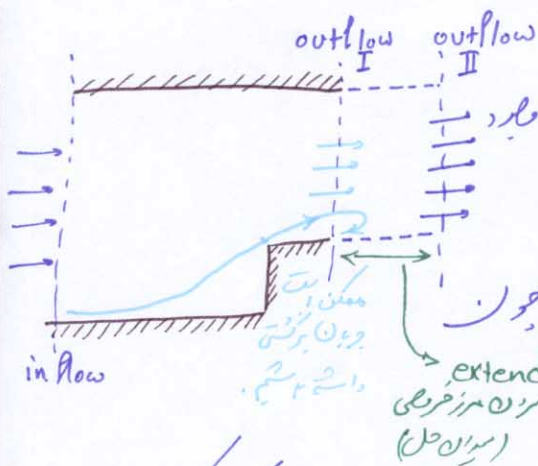 outflow
I
outflow
II
inflow
ممکن است
جریان برگشتی
داشته باشیم.
چون
extend
کردن مرز خروجی
(میدان حل)